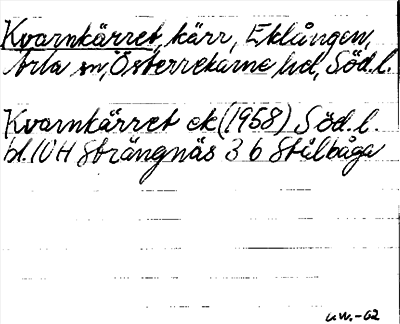 Kvarnkärret, kärr, Eklången,
Ärla sn, Österrekarne hd, Söd.l.
Kvarnkärret ek (1958) Söd.l.
bl. 10H Strängnäs 3 b Stålbåga
u.w.-62